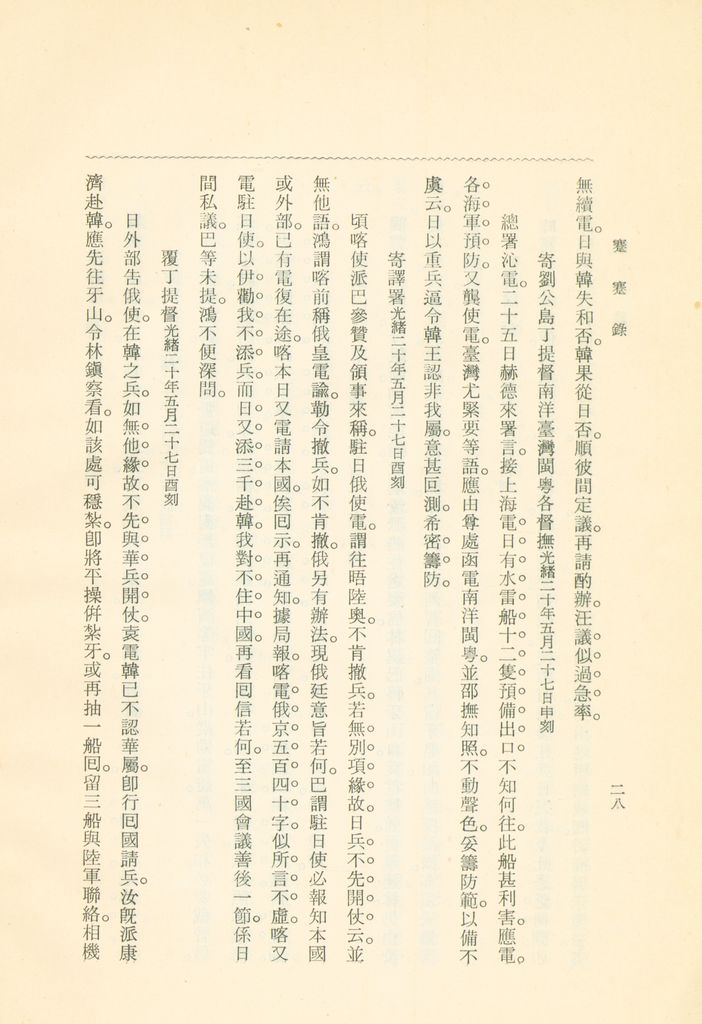 蹇蹇錄
二八
無續電。日與韓失和否。韓果從日否。順彼間定議。再請酌辦。汪議似過急率。
寄劉公島丁提督南洋臺灣閩粵各督撫光緒二十年五月二十七日申刻
總署沁電。二十五日赫德來署言。接上海電。日有水雷船十二隻預備出口不知何往。此船甚利害。應電。
各海軍預防。又龔使電。臺灣尤緊要等語。應由尊處函電南洋閩粵。並邵撫知照。不動聲色。妥籌防範。以備不
虞。云。日以重兵逼令韓王認非我屬。意甚叵測。希密籌防。
寄譯署光緒二十年五月二十七日酉刻
頃喀使派巴參贊及領事來稱。駐日俄使電。謂往晤陸奧。不肯撤兵。若無別項緣故。日兵不先開仗。云。並
無他語。鴻謂喀前稱俄皇電諭。勒令撤兵。如不肯撤。俄另有辦法。現俄廷意旨若何。巴謂駐日使必報知本國
或外部。已有電復在途。喀本日又電請本國。俟囘示再通知。據局報喀電俄京五百四十字似所言不虛。喀又
電駐日使。以伊勸我不添兵。而日又添三千赴韓。我對不住中國。再看囘信若何。至三國會議善後一節。係日
間私議。巴等未提。鴻不便深問。
覆丁提督光緒二十年五月二十七日酉刻
日外部吿俄使。在韓之兵。如無他緣故。不先與華兵開仗。袁電韓已不認華屬。卽行囘國請兵。汝旣派康
濟赴韓。應先往牙山。令林鎭察看。如該處可穩紮。卽將平操倂紮牙。或再抽一船囘。留三船與陸軍聯絡。相機